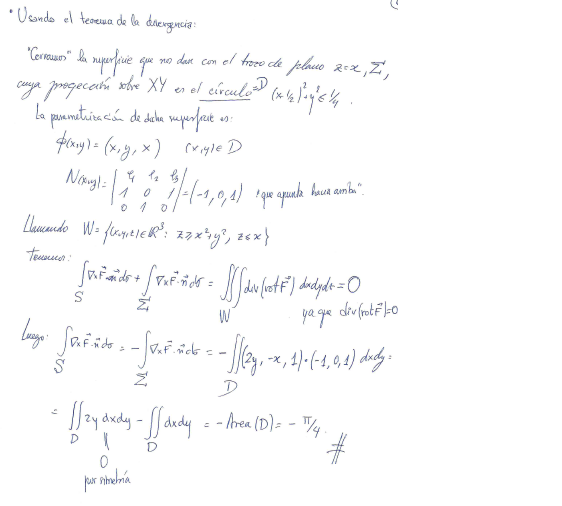 • Usando el teorema de la divergencia:
"Cerramos" la superficie que nos dan con el trozo de plano z=x, Σ,
cuya proyección sobre XY es el círculo = D (x-1/2)²+y² ≤ 1/4.
La parametrización de dicha superficie es:
ϕ(x,y) = (x, y, x)   (x,y) ∈ D
N(x,y) = | e₁ e₂ e₃ ; 1 0 1 ; 0 1 0 | = (-1, 0, 1) "que apunta hacia arriba".
Llamando W = {(x,y,z) ∈ ℝ³ : z ≥ x²+y², z ≤ x}
tenemos:
∫_S ∇×F⃗·n⃗ dσ + ∫_Σ ∇×F⃗·n⃗ dσ = ∭_W div(rot F⃗) dxdydz = 0
ya que div(rot F⃗)=0
Luego: ∫_S ∇×F⃗·n⃗ dσ = -∫_Σ ∇×F⃗·n⃗ dσ = -∬_D (2y, -x, 1)·(-1, 0, 1) dxdy =
= ∬_D 2y dxdy - ∬_D dxdy = -Area (D) = - π/4. #
||
0
por simetría